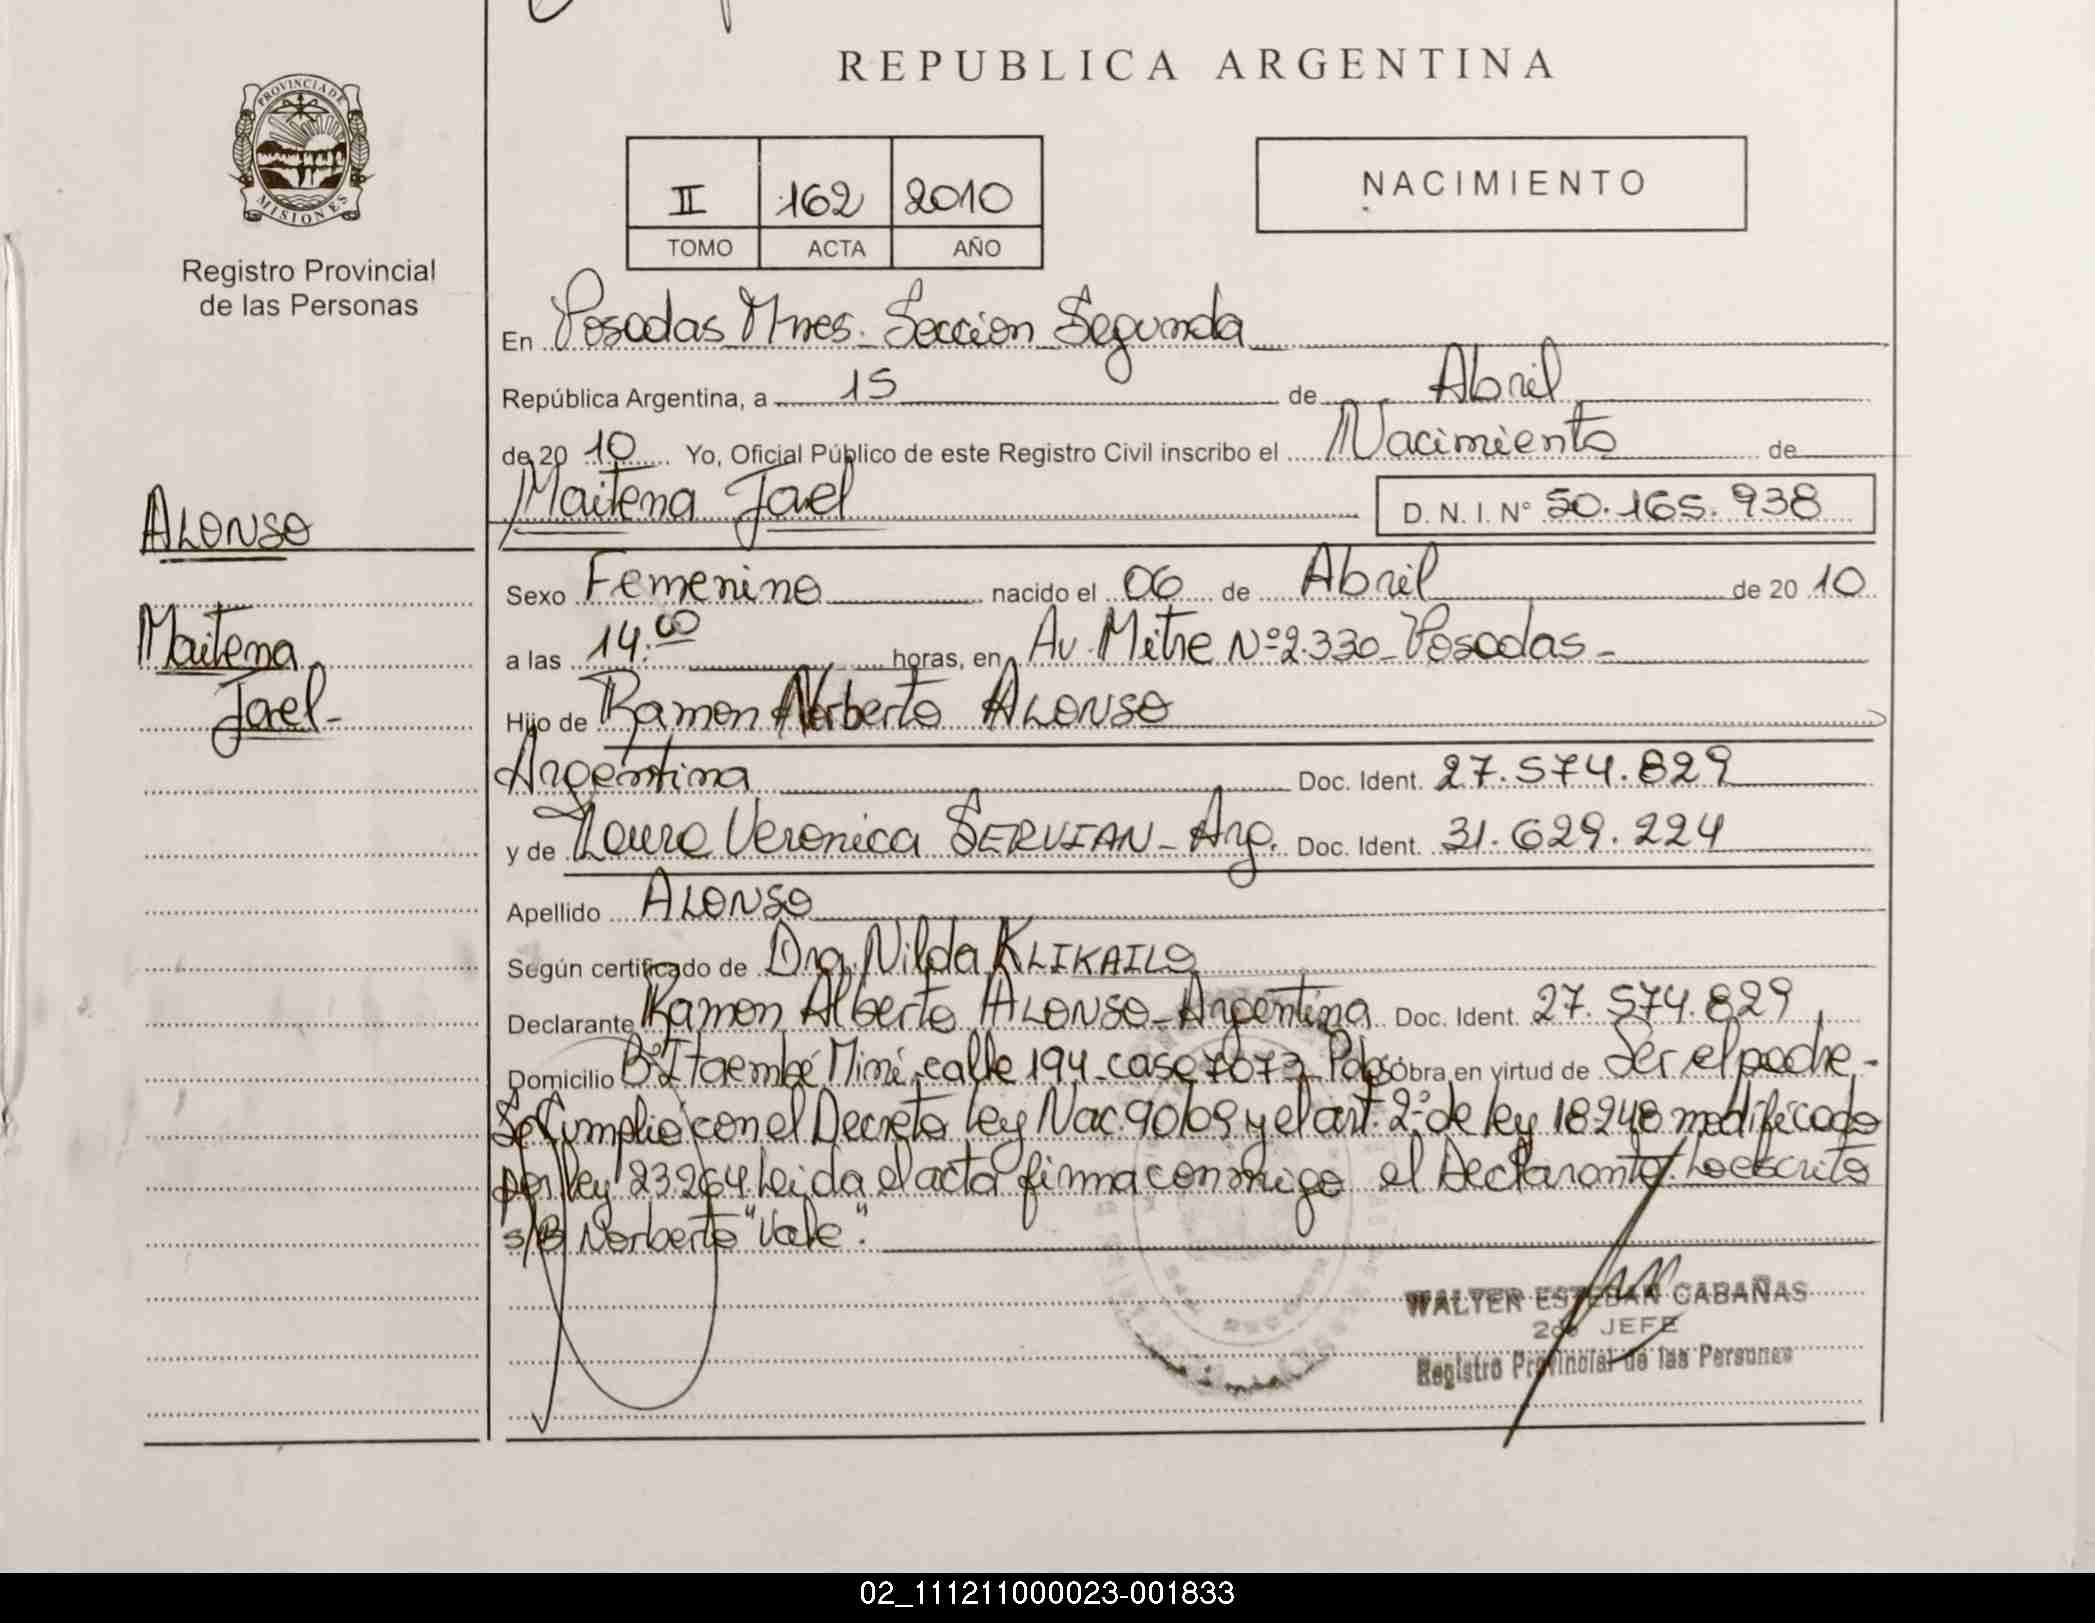 REPUBLICA ARGENTINA
PROVINCIA DE
MISIONES
Registro Provincial
de las Personas
II 162 2010
TOMO ACTA AÑO
NACIMIENTO
En Posadas Mnes. Sección Segunda
República Argentina, a 15 de Abril
de 20 10 Yo, Oficial Público de este Registro Civil inscribo el Nacimiento de
Maitena Jael D. N. I. N° 50.165.938
ALONSO
Maitena
Jael-
Sexo Femenino nacido el 06 de Abril de 20 10
a las 14:00 horas, en Av. Mitre Nº 2.330 - Posadas -
Hijo de Ramon Norberto ALONSO
Argentina Doc. Ident. 27.574.829
y de Laura Veronica SERVIAN - Arg. Doc. Ident. 31.629.224
Apellido ALONSO
Según certificado de Dra. Nilda KLIKAILO
Declarante Ramon Alberto ALONSO - Argentina Doc. Ident. 27.574.829
Domicilio Bº Itaembé Mini - calle 194 - casa 7073 Obra en virtud de Ser el padre -
Se Cumplio con el Decreto Ley Nac 90/09 y el art. 2º de ley 18248 modificado
por ley 23264. Leida el acta firma conmigo el Declarante. Lo escrito
s/B Norberto "Vale".
WALTER ESTEBAN CABAÑAS
2do JEFE
Registro Provincial de las Personas
02_111211000023-001833